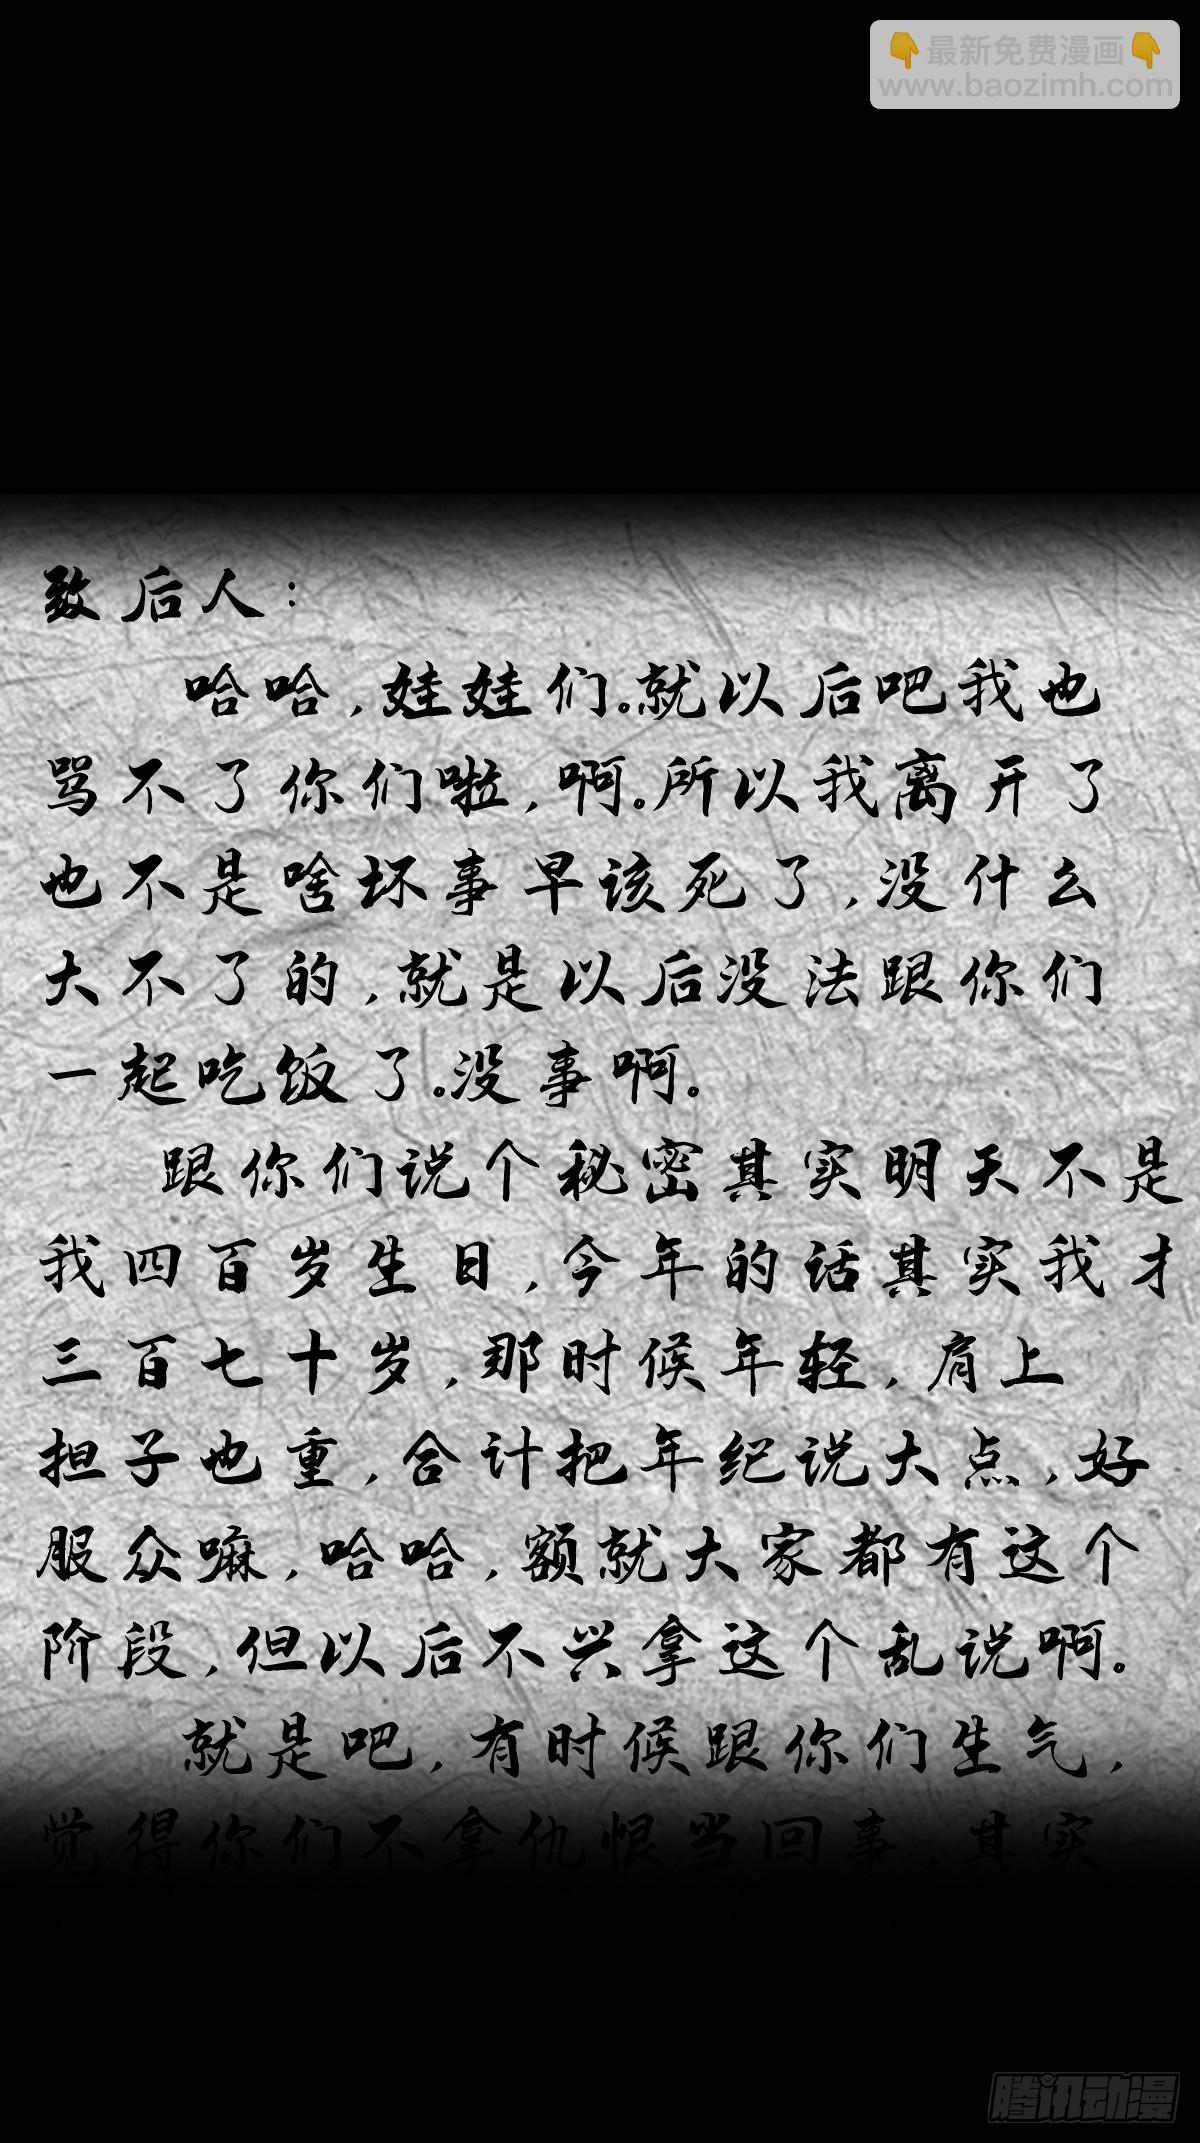 👇最新免费漫画👇
www.baozimh.com
致后人：
哈哈,娃娃们。就以后吧我也
骂不了你们啦,啊。所以我离开了
也不是啥坏事早该死了,没什么
大不了的,就是以后没法跟你们
一起吃饭了。没事啊。
跟你们说个秘密其实明天不是
我四百岁生日,今年的话其实我才
三百七十岁,那时候年轻,肩上
担子也重,合计把年纪说大点,好
服众嘛,哈哈,额就大家都有这个
阶段,但以后不兴拿这个乱说啊。
就是吧,有时候跟你们生气,
觉得你们不拿仇恨当回事,其实
腾讯动漫